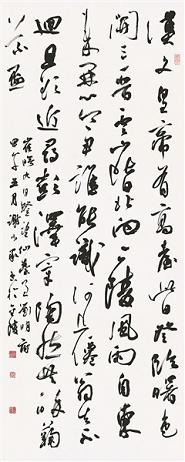 漢文皇帝有高臺此日登臨曙色
開三晉雲山皆北向二陵風雨自東
來關門令尹誰能識河上仙翁去不
迴且欲近尋彭澤宰陶然共醉菊
花盃
崔曙九日登望仙臺呈劉明府
甲午五月謝